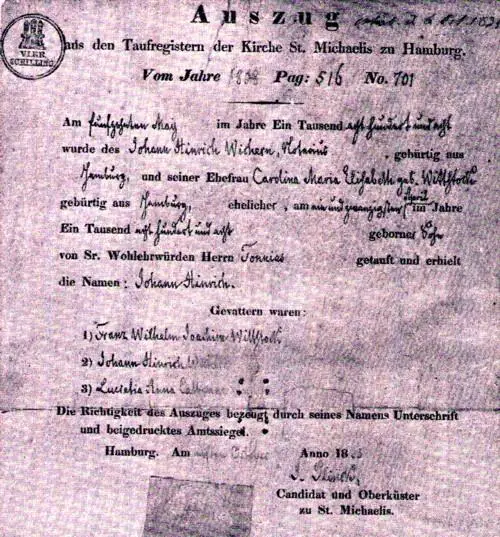 Auszug
VIER
SCHILLING
aus den Taufregistern der Kirche St. Michaelis zu Hamburg.
Vom Jahre 1808 Pag: 516 No. 701
Am fünfzehnten May im Jahre Ein Tausend acht hundert und acht
wurde des Johann Hinrich Wichern, Notarius, gebürtig aus
Hamburg, und seiner Ehefrau Carolina Maria Elisabeth geb. Wittstock
gebürtig aus Hamburg, ehelicher, am ein und zwanzigsten April im Jahre
Ein Tausend acht hundert und acht geborner Sohn
von Sr. Wohlehrwürden Herrn Tonnies getauft und erhielt
die Namen: Johann Hinrich.
Gevattern waren:
1) Franz Wilhelm Joachim Wittstock
2) Johann Hinrich
3) Lucretia Anna
Die Richtigkeit des Auszuges bezeugt durch seines Namens Unterschrift
und beigedrucktes Amtssiegel.
Hamburg. Am October Anno 18
Candidat und Oberküster
zu St. Michaelis.